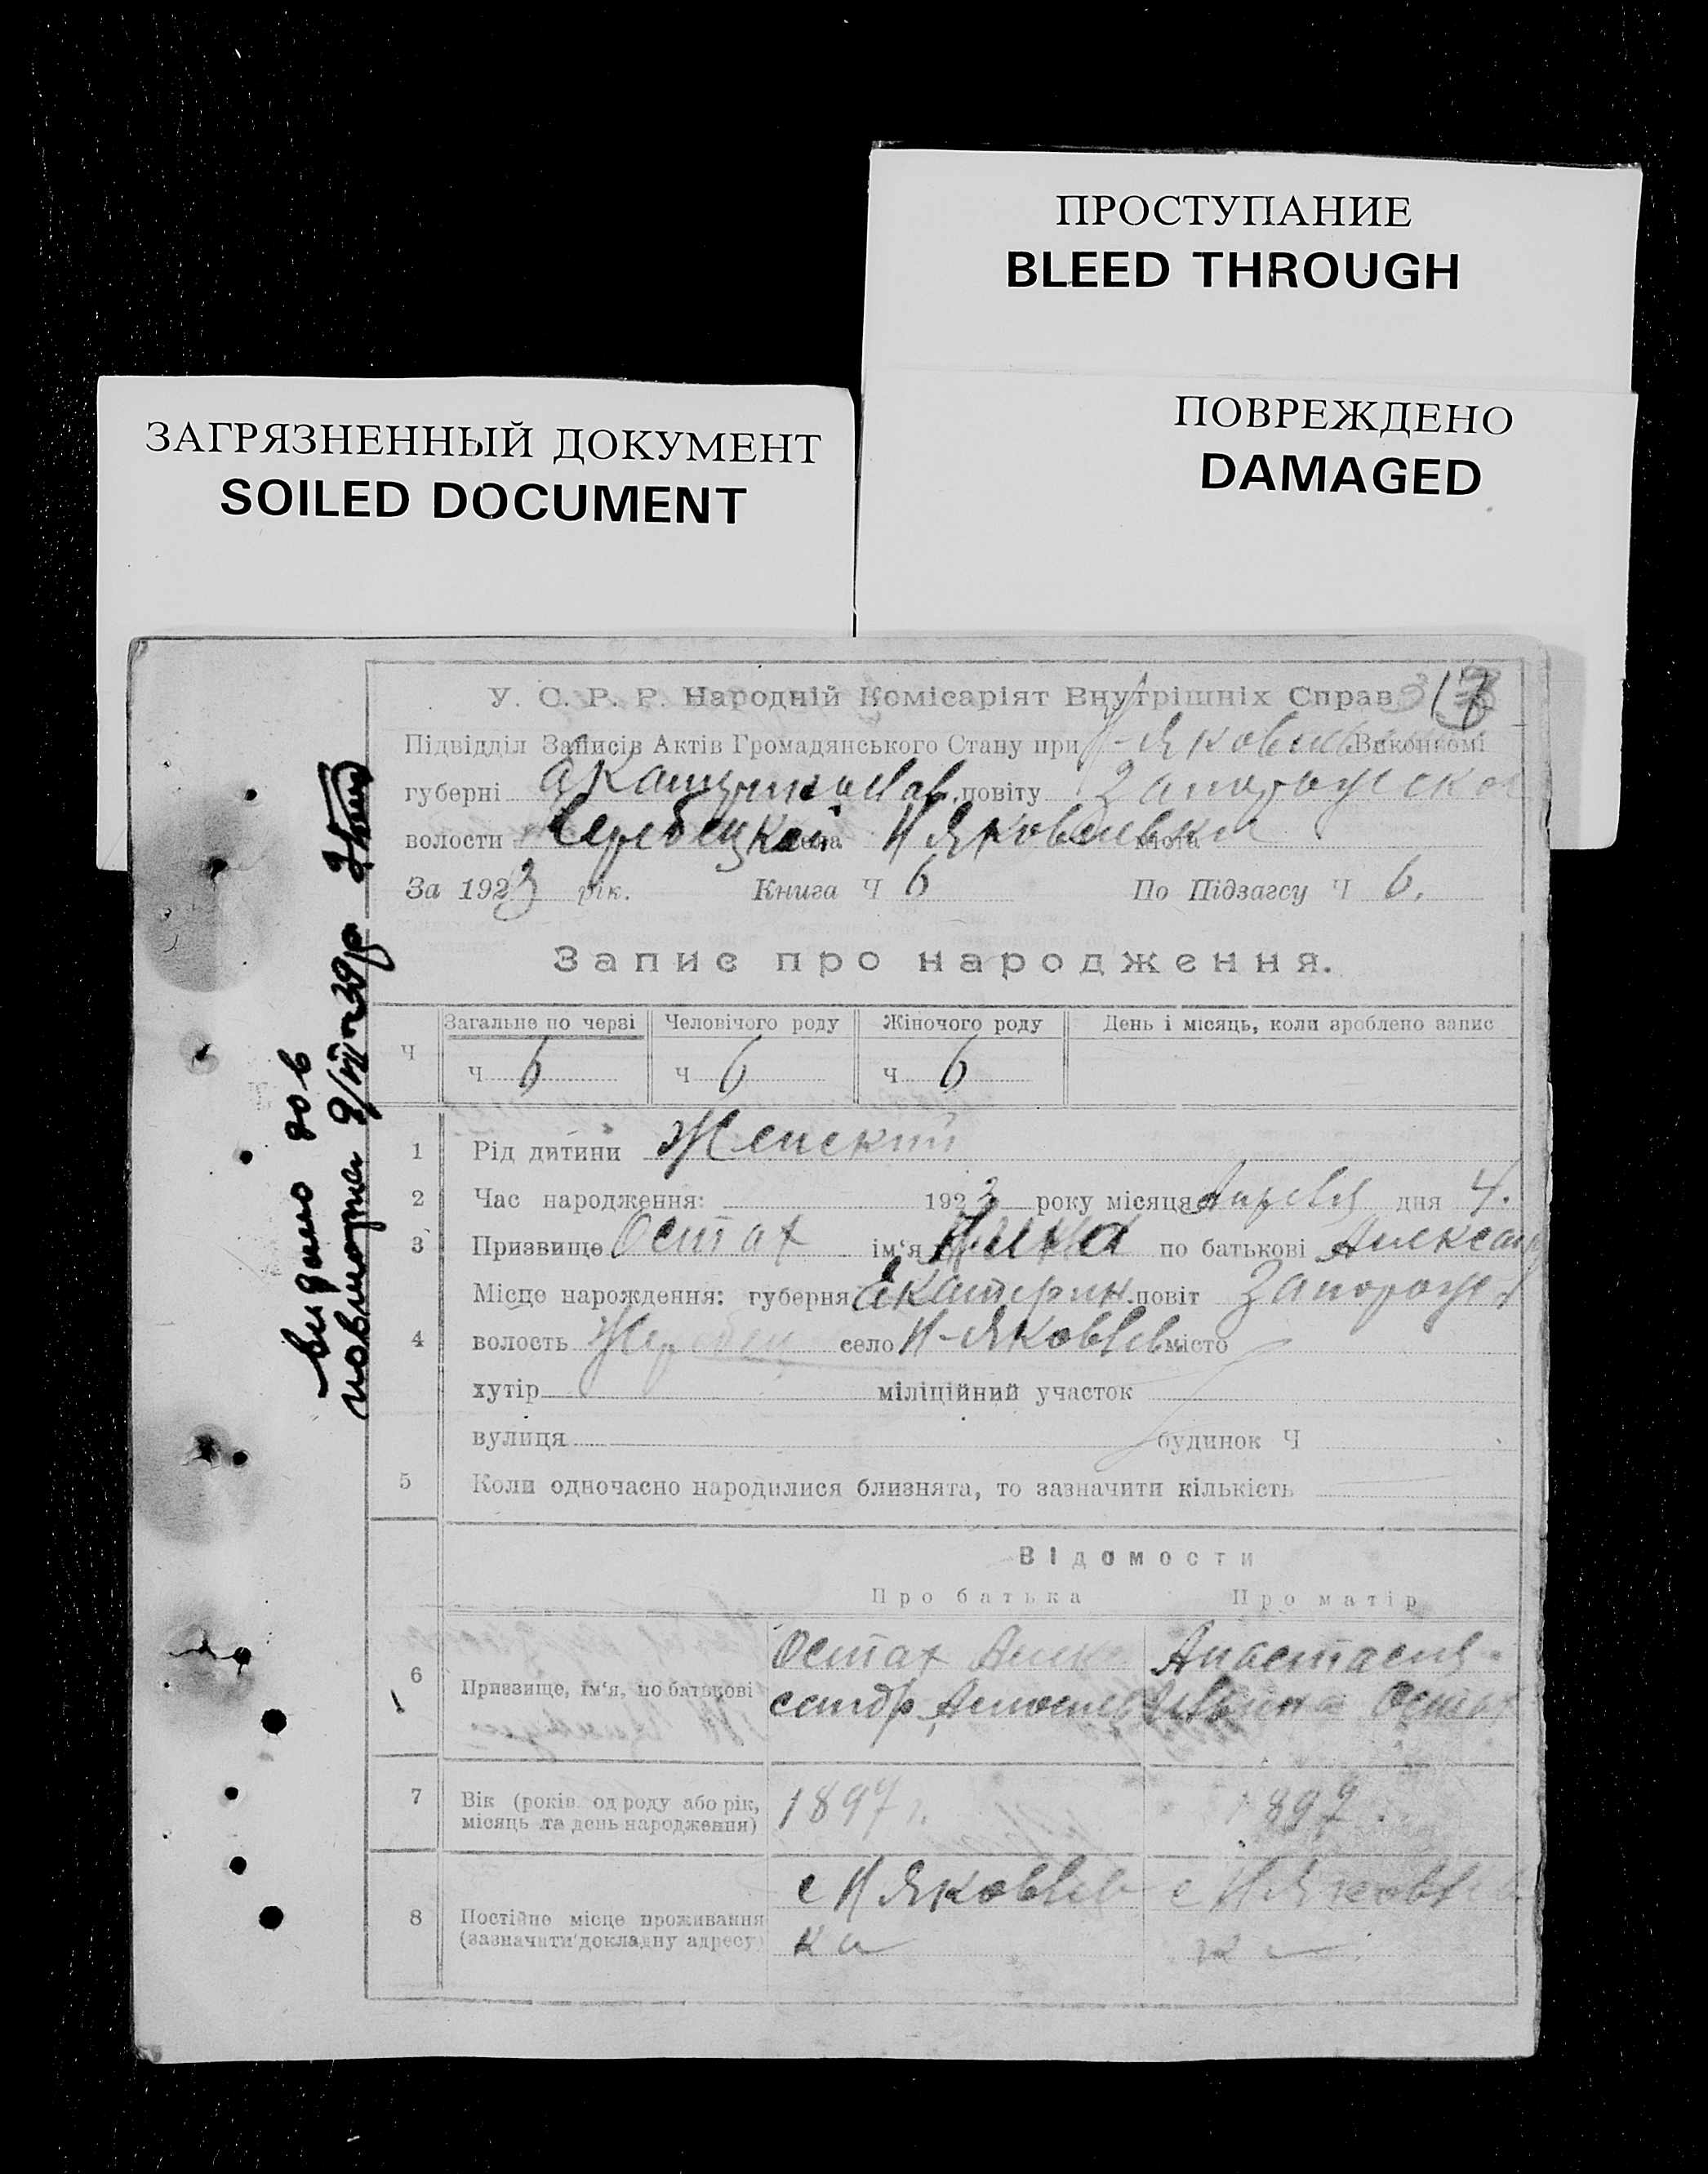 ПРОСТУПАНИЕ
BLEED THROUGH
ПОВРЕЖДЕНО
DAMAGED
ЗАГРЯЗНЕННЫЙ ДОКУМЕНТ
SOILED DOCUMENT
У. С. Р. Р. Народній Комісаріят Внутрішніх Справ
Підвідділ Записів Актів Громадянського Стану при Виконкомі
губерні повіту
волости села Н Яковлевки міста
За 1923 рік. Книга Ч 6 По Підзагсу Ч 6.
Запис про народження.
Ч Загальне по черзі Человічого роду Жіночого роду День і місяць, коли зроблено запис
ч 6 ч 6 ч 6
1 Рід дитини Женский
2 Час народження: 1923 року місяця Апреля дня 4.
3 Призвище Остах ім'я Нина по батькові Алексан
Місце нарождення: губерня Екатерин. повіт Запорож
4 волость Жеребец село Н-Яковлев місто
хутір міліційний участок
вулиця будинок Ч
5 Коли одночасно народилися близнята, то зазначити кількість
Відомости
Про батька Про матір
6 Призвище, ім'я, по батькові Остах Алек Анастасия
сандр Остах
7 Вік (років од роду або рік, місяць та день народження) 1897 1897.
8 Постійне місце проживання (зазначити докладну адресу) с Н Яковлев с Н Яковлев
ка ка
видано дов
повторна